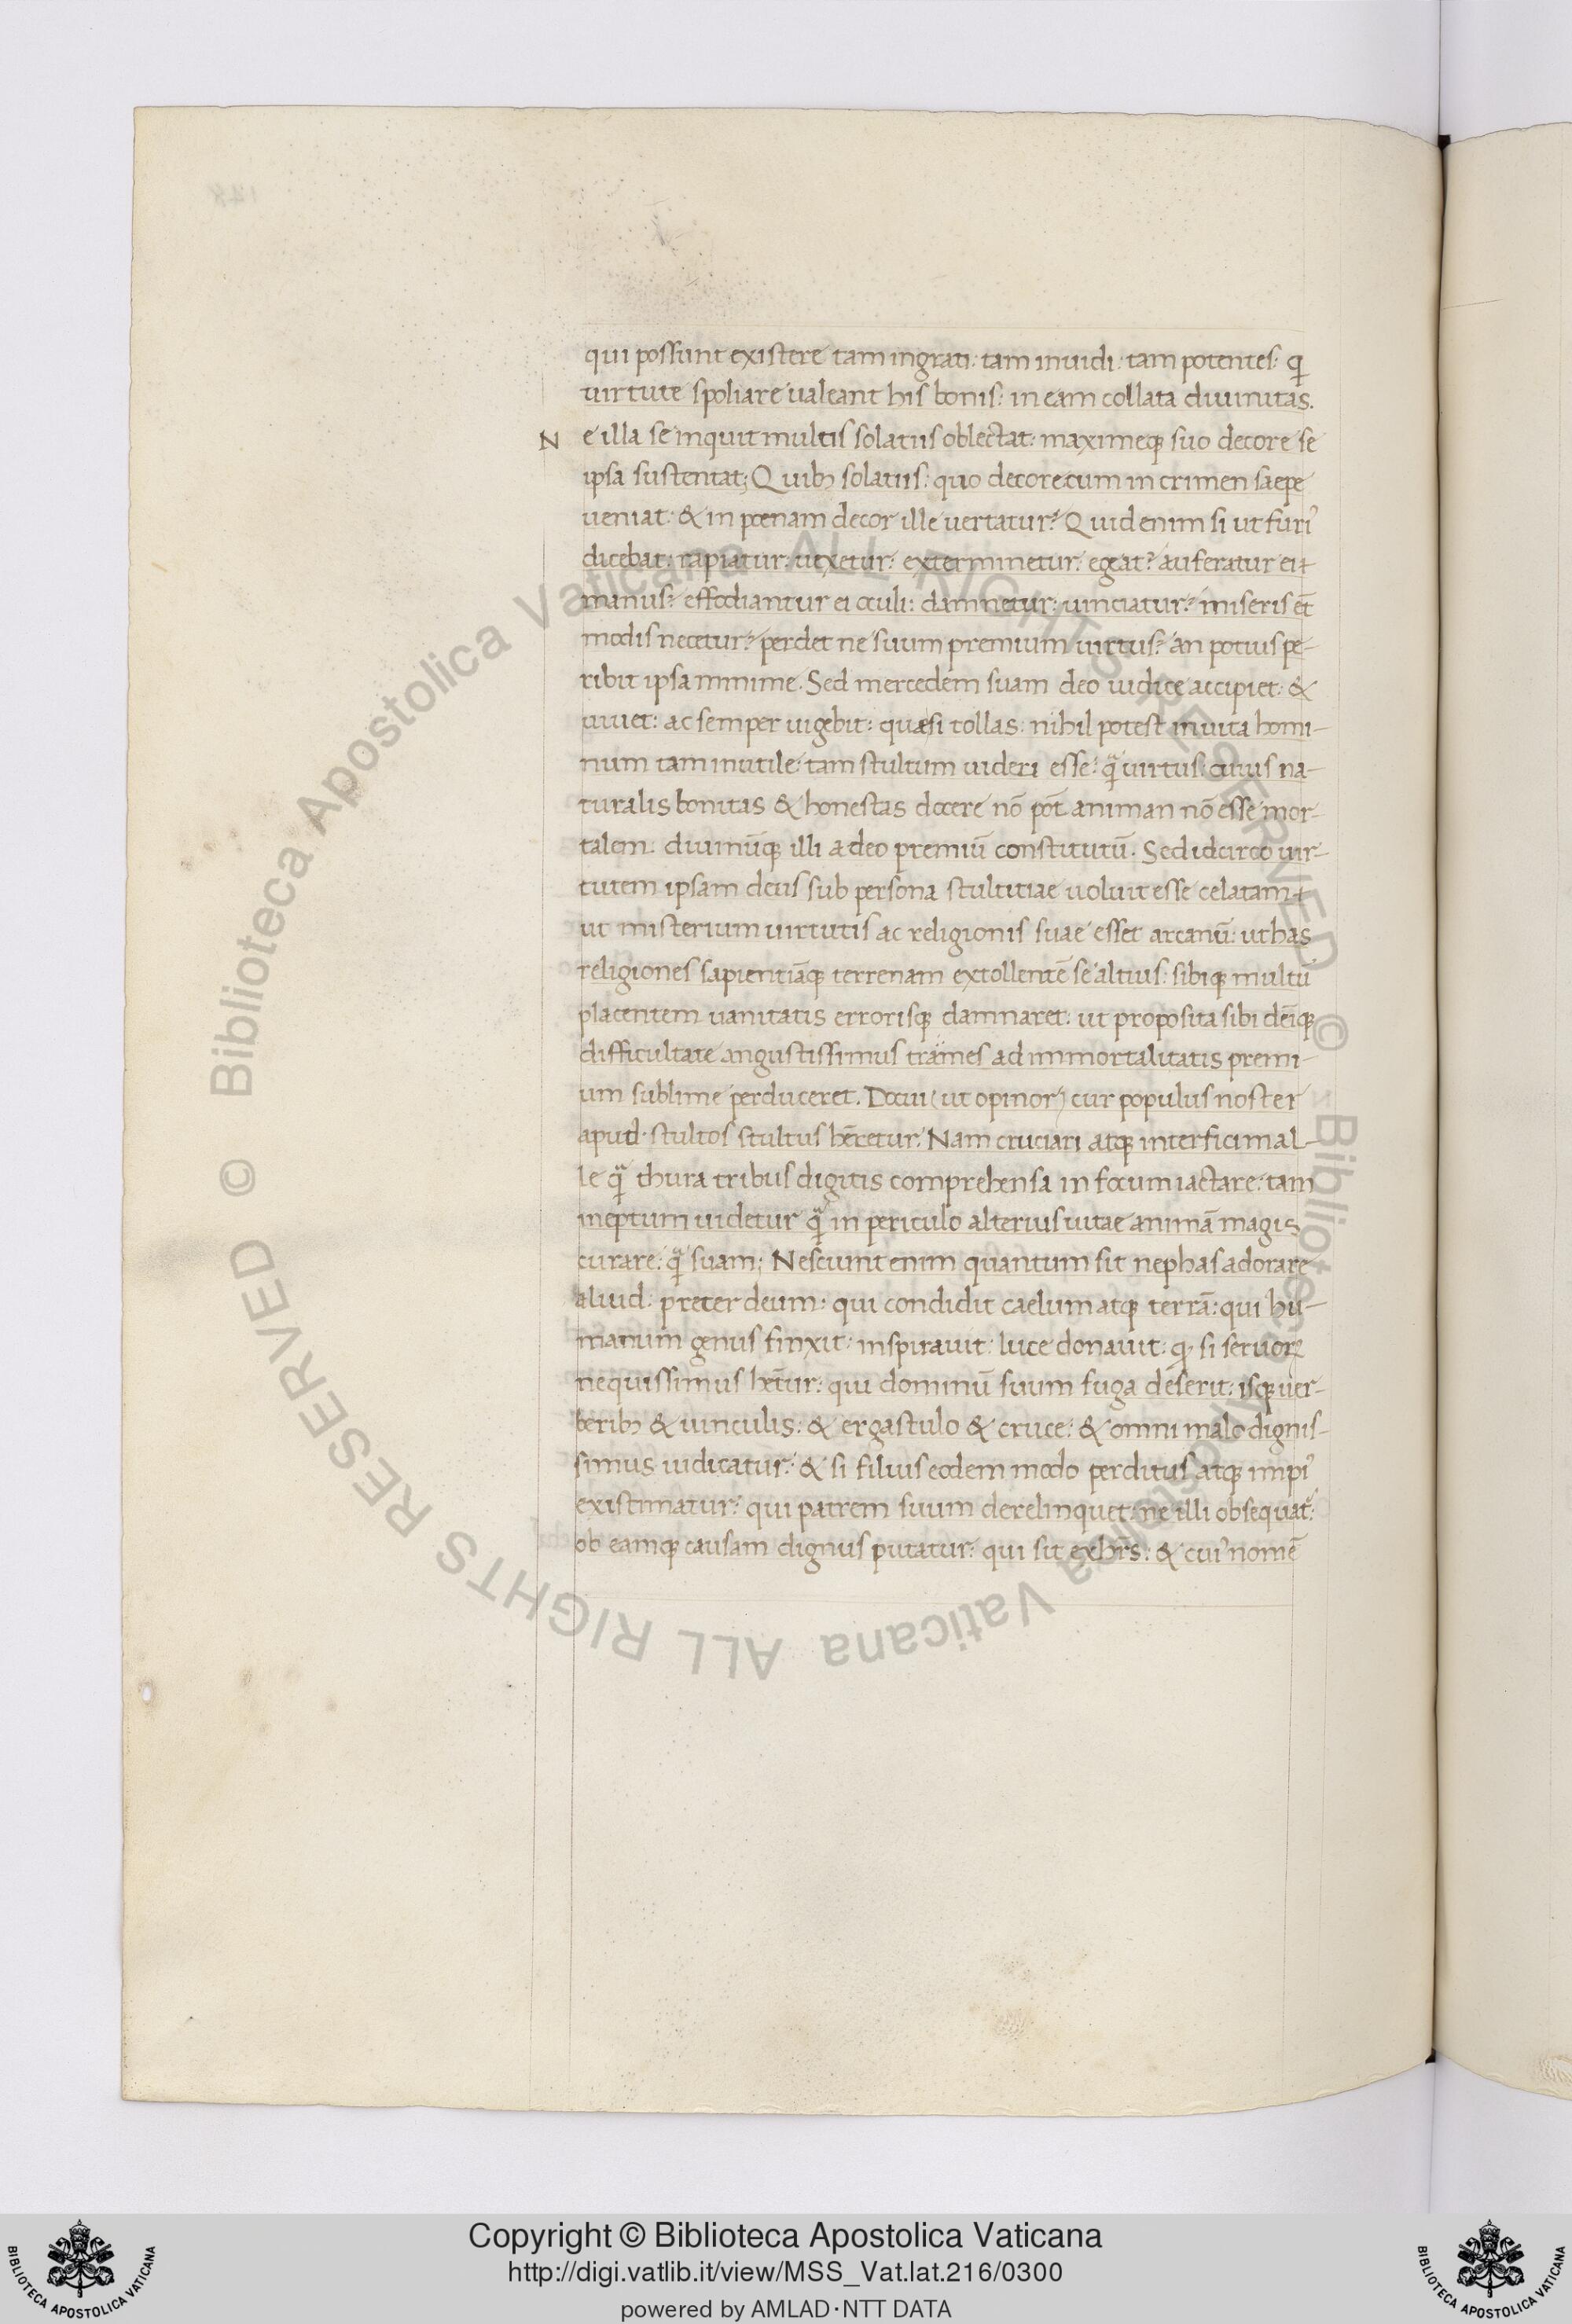 qui possunt existere tam ingrati: tam inuidi: tam potentes: q̄
uirtute spoliare ualeant his bonis: in eam collata diuinitas.
Ne illa se inquit multis solatiis oblectat: maximeqꝫ suo decore se
ipsa sustentat; Quibꝫ solatiis: quo decore cum in crimen saepe
ueniat: & in poenam decor ille uertatur? Quid enim si ut furiꝰ
dicebat: rapiatur: uexetur: exterminetur: egeat? auferatur ei
manus: effodiantur ei oculi: damnetur: uinciatur: miseris et̄
modis necetur? perdet ne suum premium uirtus? an potius pe-
ribit ipsa minime. Sed mercedem suam deo iudice accipiet: &
uiuet: ac semper uigebit: quae si tollas: nihil potest in uita homi-
num tam inutile: tam stultum uideri esse: q̃ uirtus: cuius na-
turalis bonitas & honestas docere nō pōt animan nō esse mor-
talem. diuinūqꝫ illi a deo premiū constitutū. Sed idcirco uir-
tutem ipsam deus sub persona stultitiae uoluit esse celatam
ut misterium uirtutis ac religionis suae esset arcanū: ut has
religiones sapientiāqꝫ terrenam extollentē se altius: sibiqꝫ multū
placentem uanitatis errorisqꝫ damnaret. ut proposita sibi dēiqꝫ
difficultate angustissimus trames ad immortalitatis premi-
um sublime perduceret. Docui (ut opinor) cur populus noster
apud stultos stultus hr̄etur. Nam cruciari atqꝫ interfici mal-
le q̃ thura tribus digitis comprehensa in focum iactare: tam
ineptum uidetur q̃ in periculo alterius uitae animā magis
curare: q̃ suam; Nesciunt enim quantum sit nephas adorare
aliud preter deum: qui condidit caelum atqꝫ terrā: qui hu-
manum genus finxit: inspirauit: luce donauit: qꝫ si seruoꝝ
nequissimus hētur: qui dominū suum fuga deserit: isqꝫ uer-
beribꝫ & uinculis: & ergastulo & cruce: & omni malo dignis-
simus iudicatur: & si filius eodem modo perditus atqꝫ impiꝰ
existimatur: qui patrem suum derelinquet: ne illi obsequat̃:
ob eamqꝫ causam dignus putatur: qui sit exhr̄s: & cuiꝰ nomē
© Biblioteca Apostolica Vaticana ALL RIGHTS RESERVED © Biblioteca Apostolica Vaticana ALL RIGHTS RESERVED
Copyright © Biblioteca Apostolica Vaticana
http://digi.vatlib.it/view/MSS_Vat.lat.216/0300
powered by AMLAD·NTT DATA
BIBLIOTECA APOSTOLICA VATICANA
BIBLIOTECA APOSTOLICA VATICANA